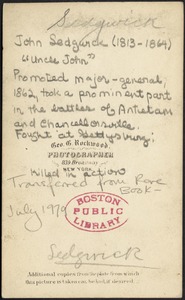 Sedgwick
John Sedgwick (1813-1864)
"Uncle John"
Promoted major-general,
1862, took a prominent part
in the battles of Antietam
and Chancellorsville.
Fought at Gettysburg.
Geo. G. Rockwood
PHOTOGRAPHER
839 Broadway
NEW YORK
Killed in action
Transferred from Rare
Book -
July 1979
BOSTON
PUBLIC
LIBRARY
Sedgwick
Additional copies from the plate from which
this picture was taken can be had if desired.